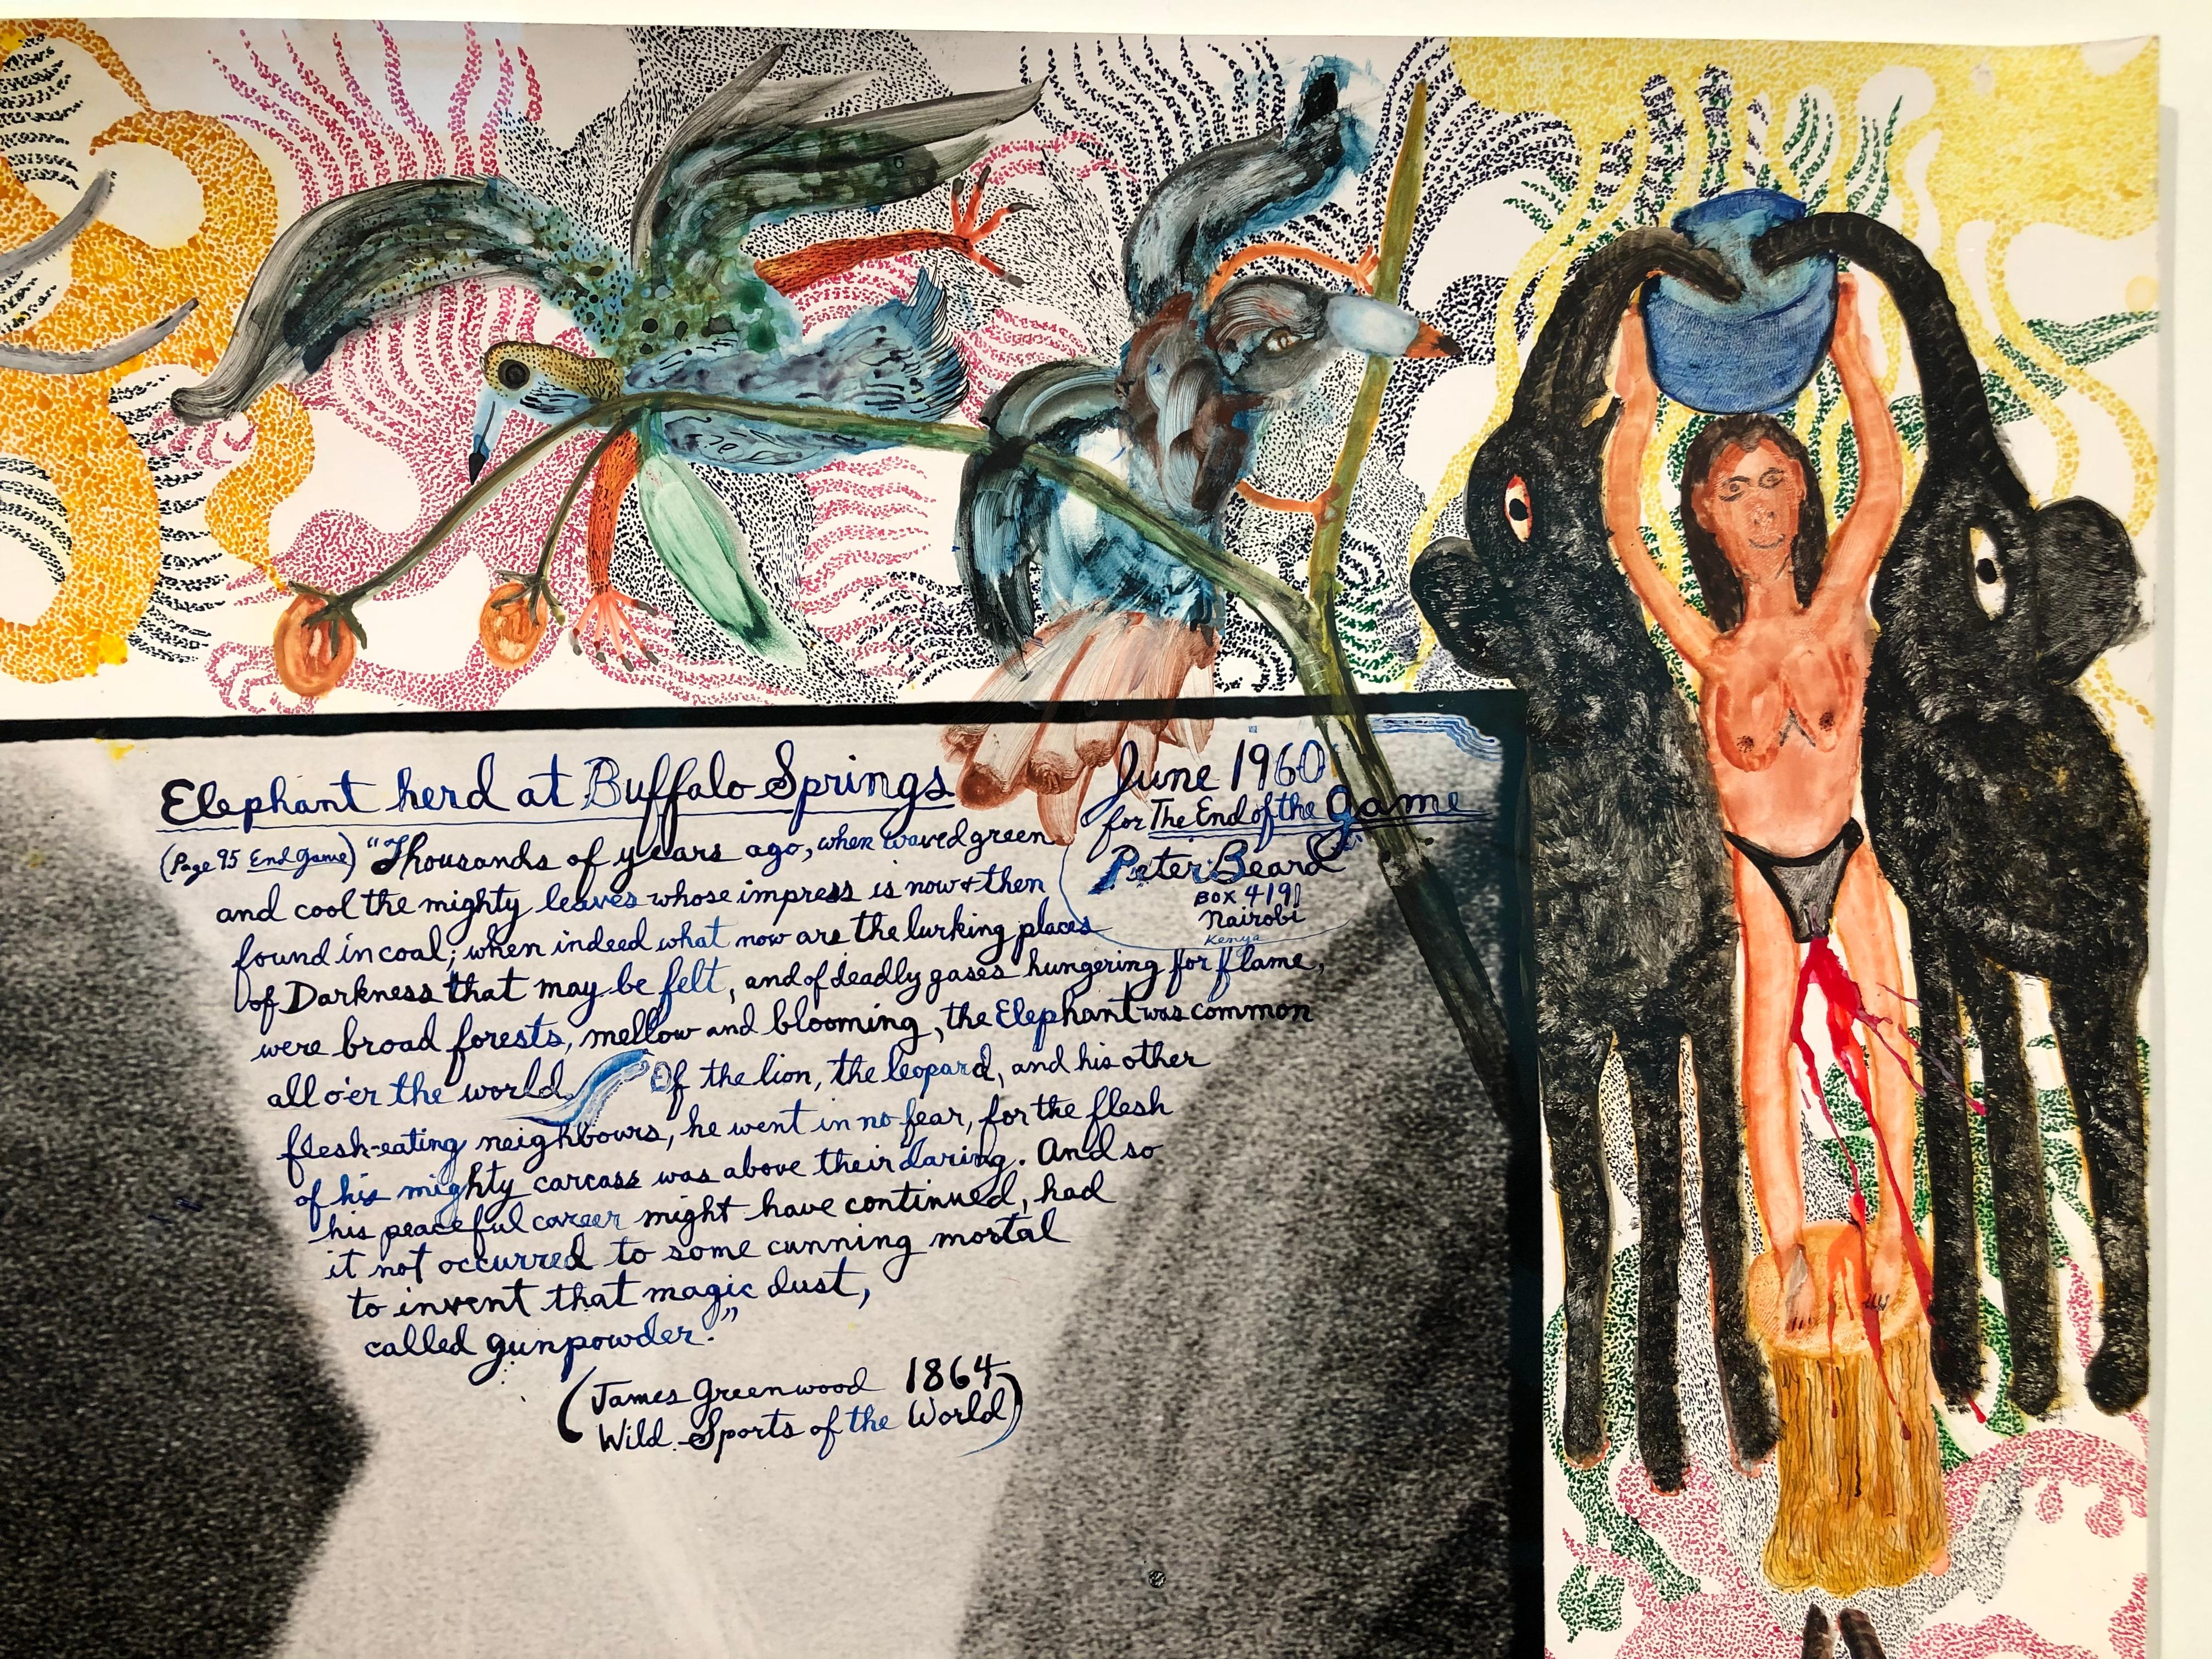 Elephant herd at Buffalo Springs
June 1960
for The End of the Game
Peter Beard
BOX 4191
Nairobi
Kenya
(Page 95 End Game) "Thousands of years ago, when waved green
and cool the mighty leaves whose impress is now & then
found in coal; when indeed what now are the lurking places
of Darkness that may be felt, and of deadly gases hungering for flame,
were broad forests, mellow and blooming, the Elephant was common
all o'er the world. Of the lion, the leopard, and his other
flesh-eating neighbours, he went in no fear, for the flesh
of his mighty carcass was above their daring. And so
his peaceful career might have continued, had
it not occurred to some cunning mortal
to invent that magic dust,
called gunpowder."
(James Greenwood 1864
Wild Sports of the World)